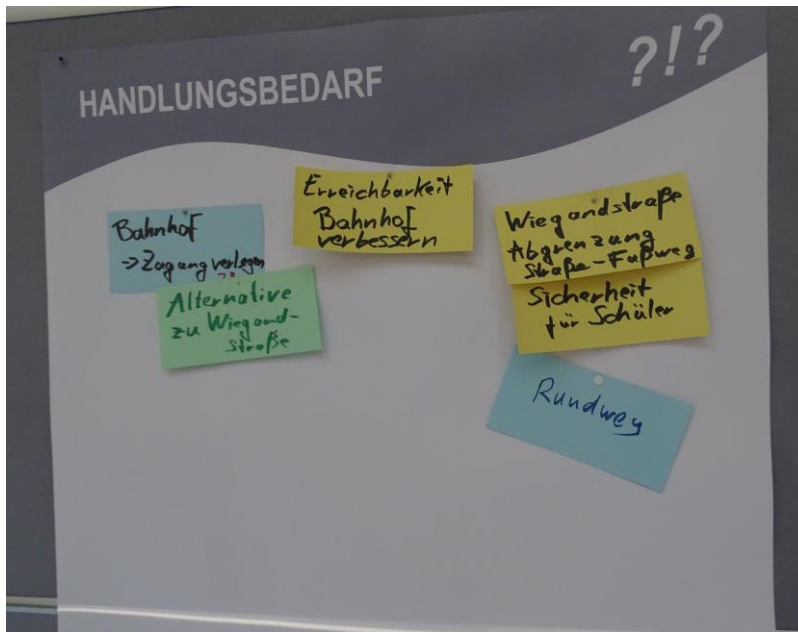 HANDLUNGSBEDARF
?!?
Bahnhof
->Zugang verlegen
Alternative
zu Wiegand-
straße
Erreichbarkeit
Bahnhof
verbessern
Wiegandstraße
Abgrenzung
Straße-Fußweg
Sicherheit
für Schüler
Rundweg